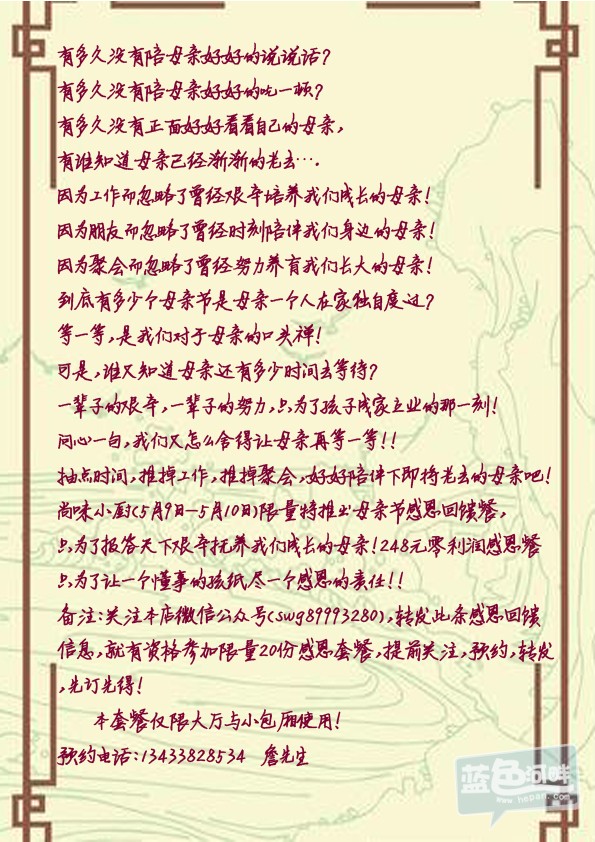 有多久没有陪母亲好好的说说话?
有多久没有陪母亲好好的吃一顿?
有多久没有正面好好看看自己的母亲,
有谁知道母亲已经渐渐的老去….
因为工作而忽略了曾经艰辛培养我们成长的母亲!
因为朋友而忽略了曾经时刻陪伴我们身边的母亲!
因为聚会而忽略了曾经努力养育我们长大的母亲!
到底有多少个母亲节是母亲一个人在家独自度过?
等一等,是我们对于母亲的口头禅!
可是,谁又知道母亲还有多少时间去等待?
一辈子的艰辛,一辈子的努力,只为了孩子成家立业的那一刻!
问心一句,我们又怎么舍得让母亲再等一等!!
抽点时间,推掉工作,推掉聚会,好好陪伴下即将老去的母亲吧!
尚味小厨(5月9日—5月10日)限量特推出母亲节感恩回馈餐,
只为了报答天下艰辛抚养我们成长的母亲!248元零利润感恩餐
只为了让一个懂事的孩纸尽一个感恩的责任!!
备注:关注本店微信公众号(swg89993280),转发此条感恩回馈
信息,就有资格参加限量20份感恩套餐,提前关注,预约,转发
,先订先得!
本套餐仅限大厅与小包厢使用!
预约电话:13433828534 詹先生
蓝色河畔
www.hepan.com